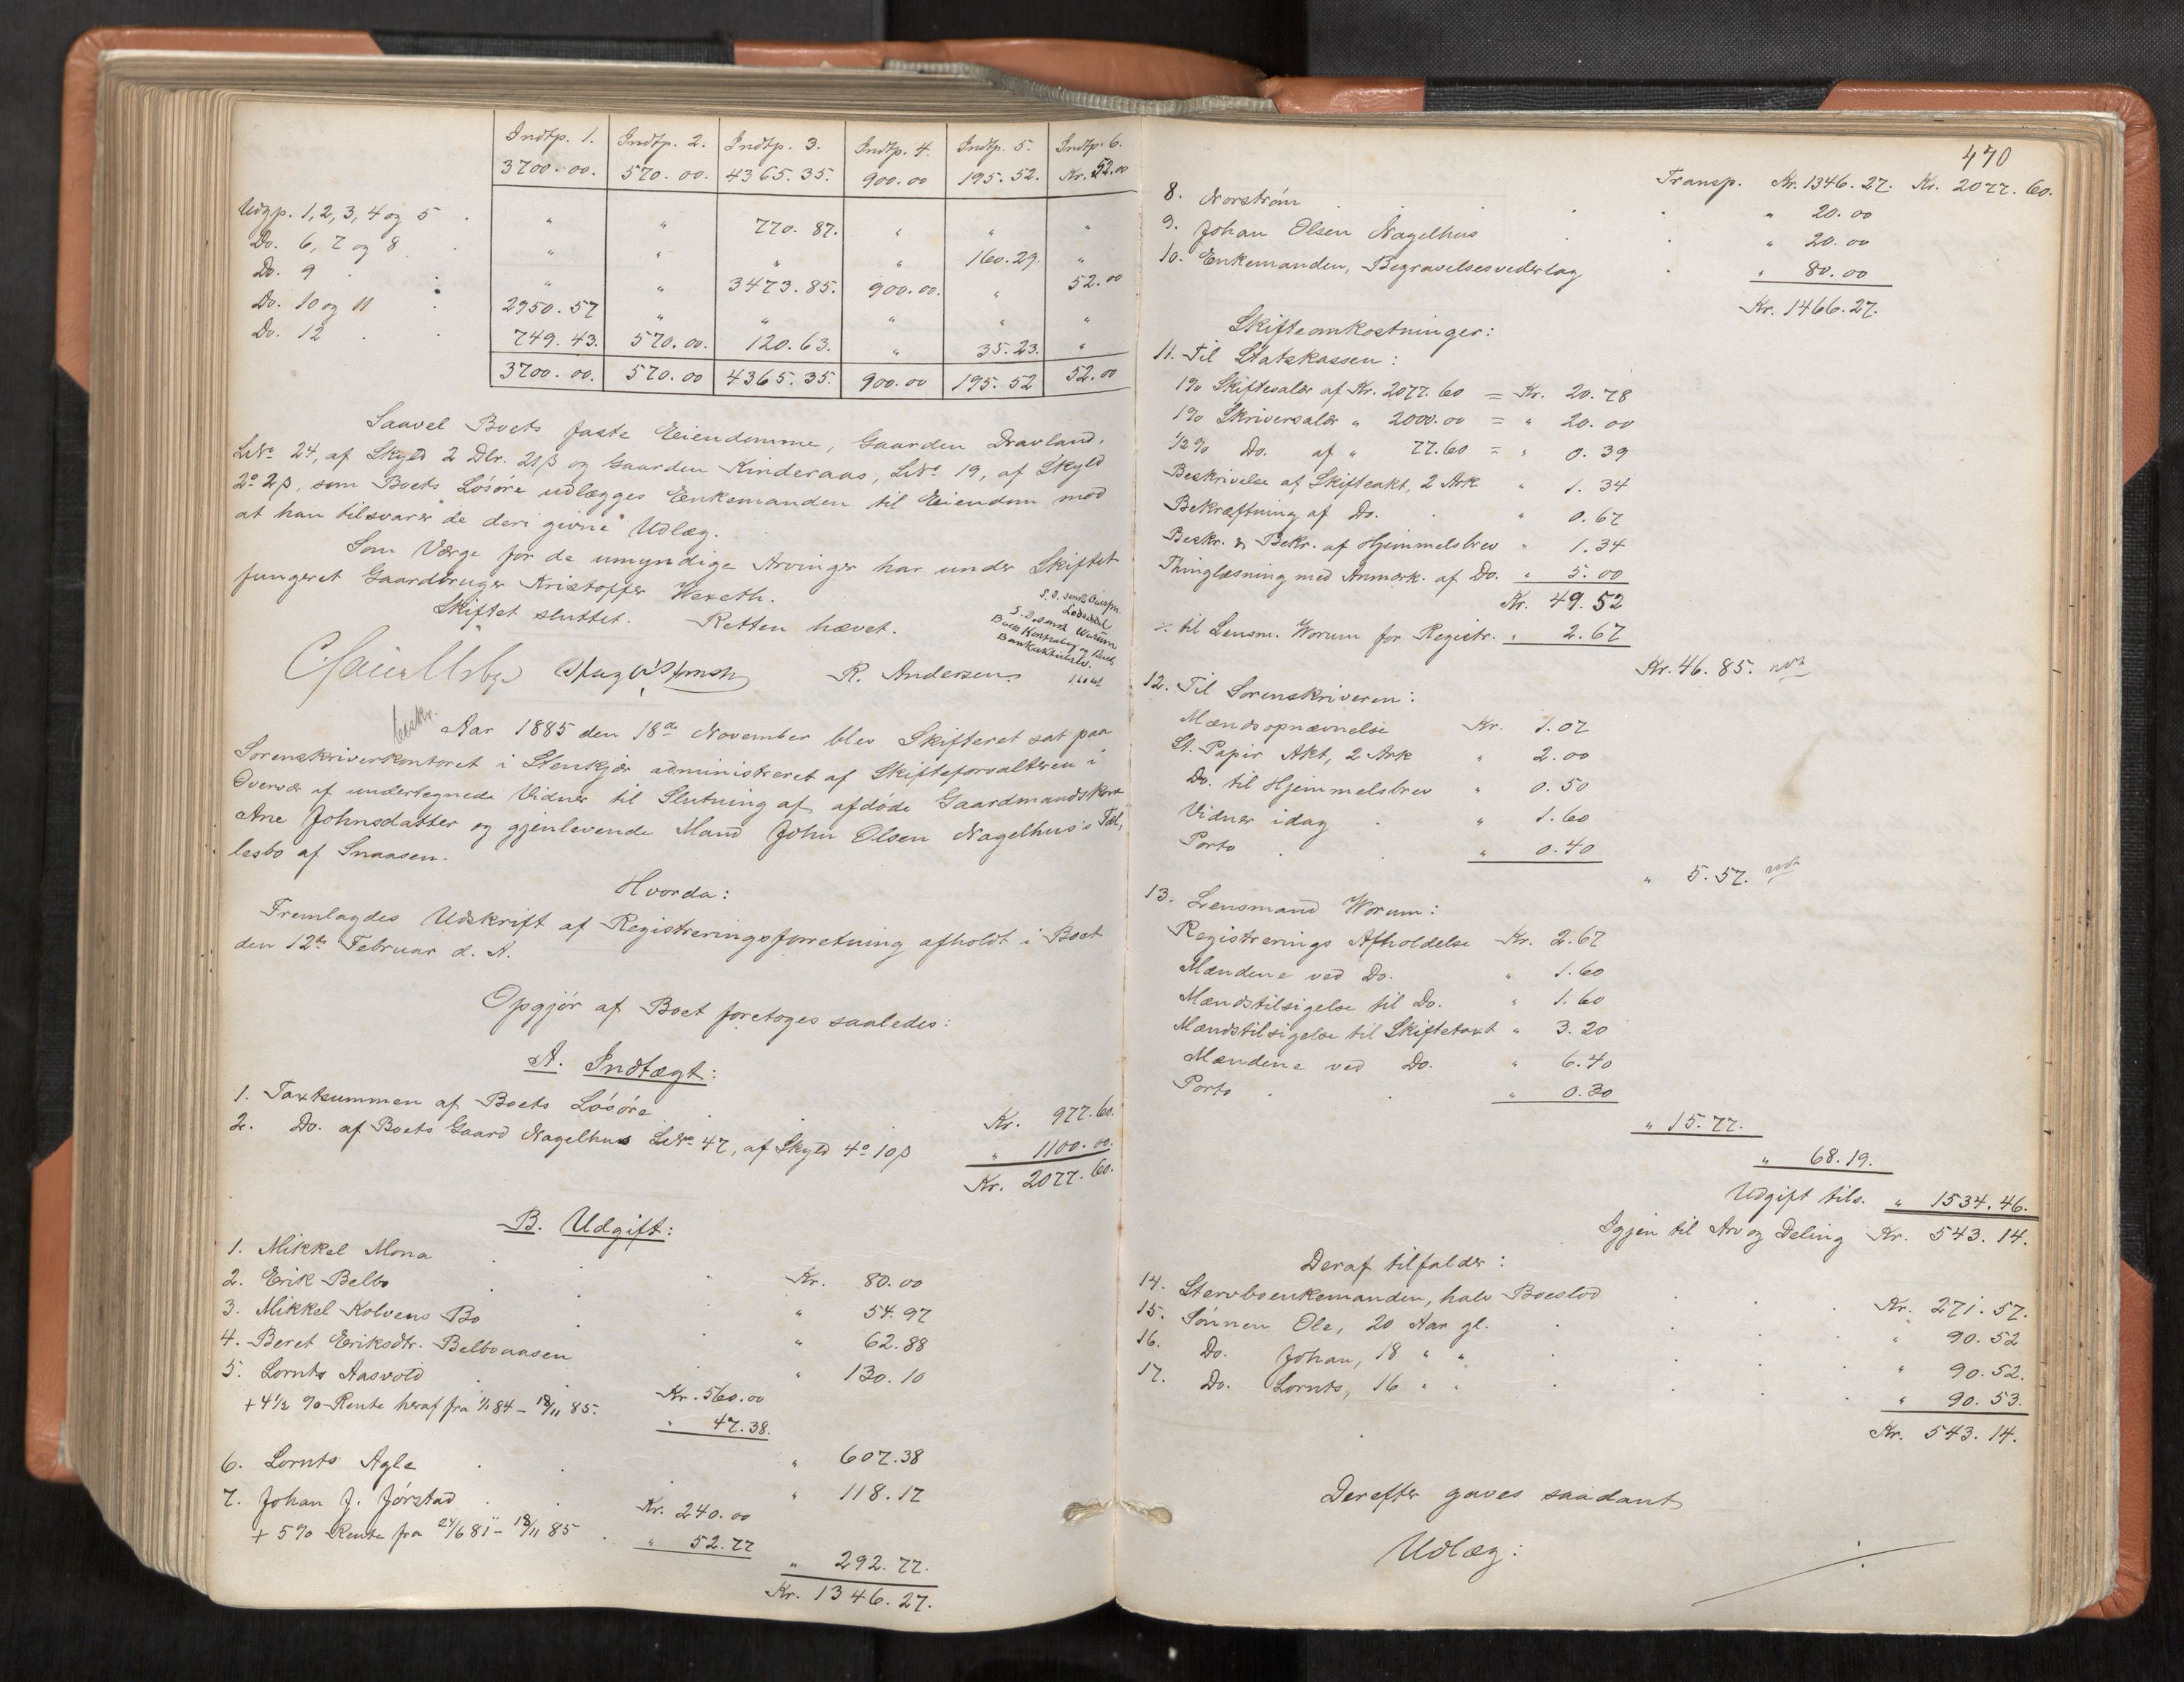 Indtp. 1. Indtp. 2. Indtp. 3. Indtp. 4. Indtp. 5. Indtp. 6.
3700.00. 570.00. 4365.35. 900.00 195.52. Kr. 52.00
Udgp. 1, 2, 3, 4 og 5 . " " 770.87. " " "
Do. 6, 7 og 8 . " " " " 160.29. "
Do. 9 . . " " 3473.85. 900.00. " 52.00
Do. 10 og 11 . 2950.57 " " " " "
Do. 12 . . 749.43. 570.00. 120.63. " 35.23. "
3700.00. 570.00 4365.35. 900.00 195.52 52.00
Saavel Boets faste Eiendomme, Gaarden Dravland,
LNo. 24, af Skyld 2 Dlr. 21 β og Gaarden Kinderaas, LNo. 19, af Skyld
2o 2β, som Boets Løsøre udlægges Enkemanden til Eiendom mod
at han tilsvarer de deri givne Udlæg.
Som Værge for de umyndige Arvinger har under Skiftet
fungeret Gaardbruger Kristoffer Wexeth.
Skiftet sluttet. Retten hævet.
R. Andersen
beskr.
Aar 1885 den 18de November blev Skifteret sat paa
Sorenskriverkontoret i Stenkjær administreret af Skifteforvalteren i
Overvær af undertegnede Vidner til Slutning af afdøde Gaardmandskone
Ane Johnsdatter og gjenlevende Mand John Olsen Nagelhus's Fæl,
lesbo af Snaasen.
Hvorda:
Fremlagdes Udskrift af Registreringsforretning afholdt i Boet
den 12te Februar d. A.
Opgjør af Boet foretoges saaledes:
A. Indtægt:
1. Taxtsummen af Boets Løsøre . . Kr. 977.60.
2. Do. af Boets Gaard Nagelhus LNo. 47, af Skyld 4o 10β " 1100.00.
Kr. 2077.60.
B. Udgift:
1. Mikkel Mona . . . Kr. 80.00
2. Erik Belbo . . " 54.97
3. Mikkel Kolvens Bo . . " 62.88
4. Beret Eriksdtr. Belboaasen . " 130.10
5. Lornts Aasvold . . Kr. 560.00
+ 4½ % Rente heraf fra 1/1 84 - 18/11 85. " 47.38.
" 607.38
6. Lornts Agle . . " 118.17
7. Johan J. Jørstad . . Kr. 240.00
+ 5% Rente fra 24/6 81 - 18/11 85 . " 52.77
" 292.77.
Kr. 1346.27.
470
Transp. Kr. 1346.27. Kr. 2077.60.
8. Norstrøm . . " 20.00
9. Johan Olsen Nagelhus . . " 20.00
10. Enkemanden, Begravelsesvederlag . " 80.00
Kr. 1466.27.
Skifteomkostninger:
11. Til Statskassen:
1% Skiftesalær af Kr. 2077.60 = Kr. 20.78
1% Skriversalær " 2000.00 = " 20.00
½% Do. af " 77.60 = " 0.39
Beskrivelse af Skifteakt, 2 Ark " 1.34
Bekræftning af Do. . " 0.67
Beskr. & Bekr. af Hjemmelsbrev " 1.34
Thinglæsning med Anmærk. af Do. " 5.00
Kr. 49.52
÷ til Lensm. Worum for Registr. " 2.67
Kr. 46.85.
12. Til Sorenskriveren:
Mændsopnævnelse Kr. 1.07
St. Papir Akt, 2 Ark " 2.00
Do. til Hjemmelsbrev " 0.50
Vidner idag . " 1.60
Porto . . " 0.40
" 5.57.
13. Lensmand Worum:
Registrerings Afholdelse Kr. 2.67
Mændene ved Do. " 1.60
Mændstilsigelse til Do. " 1.60
Mændstilsigelse til Skiftetaxt " 3.20
Mændene ved Do. " 6.40
Porto . . " 0.30
" 15.77.
" 68.19.
Udgift tils. " 1534.46.
Igjen til Arv og Deling Kr. 543.14.
Deraf tilfalder:
14. Stervboenkemanden, halv Boeslod . . Kr. 271.57.
15. Sønnen Ole, 20 Aar gl. . . . " 90.52
16. Do. Johan, 18 " " . . . " 90.52.
17. Do. Lornts, 16 " " . . . " 90.53.
Kr. 543.14.
Derefter gaves saadant
Udlæg: